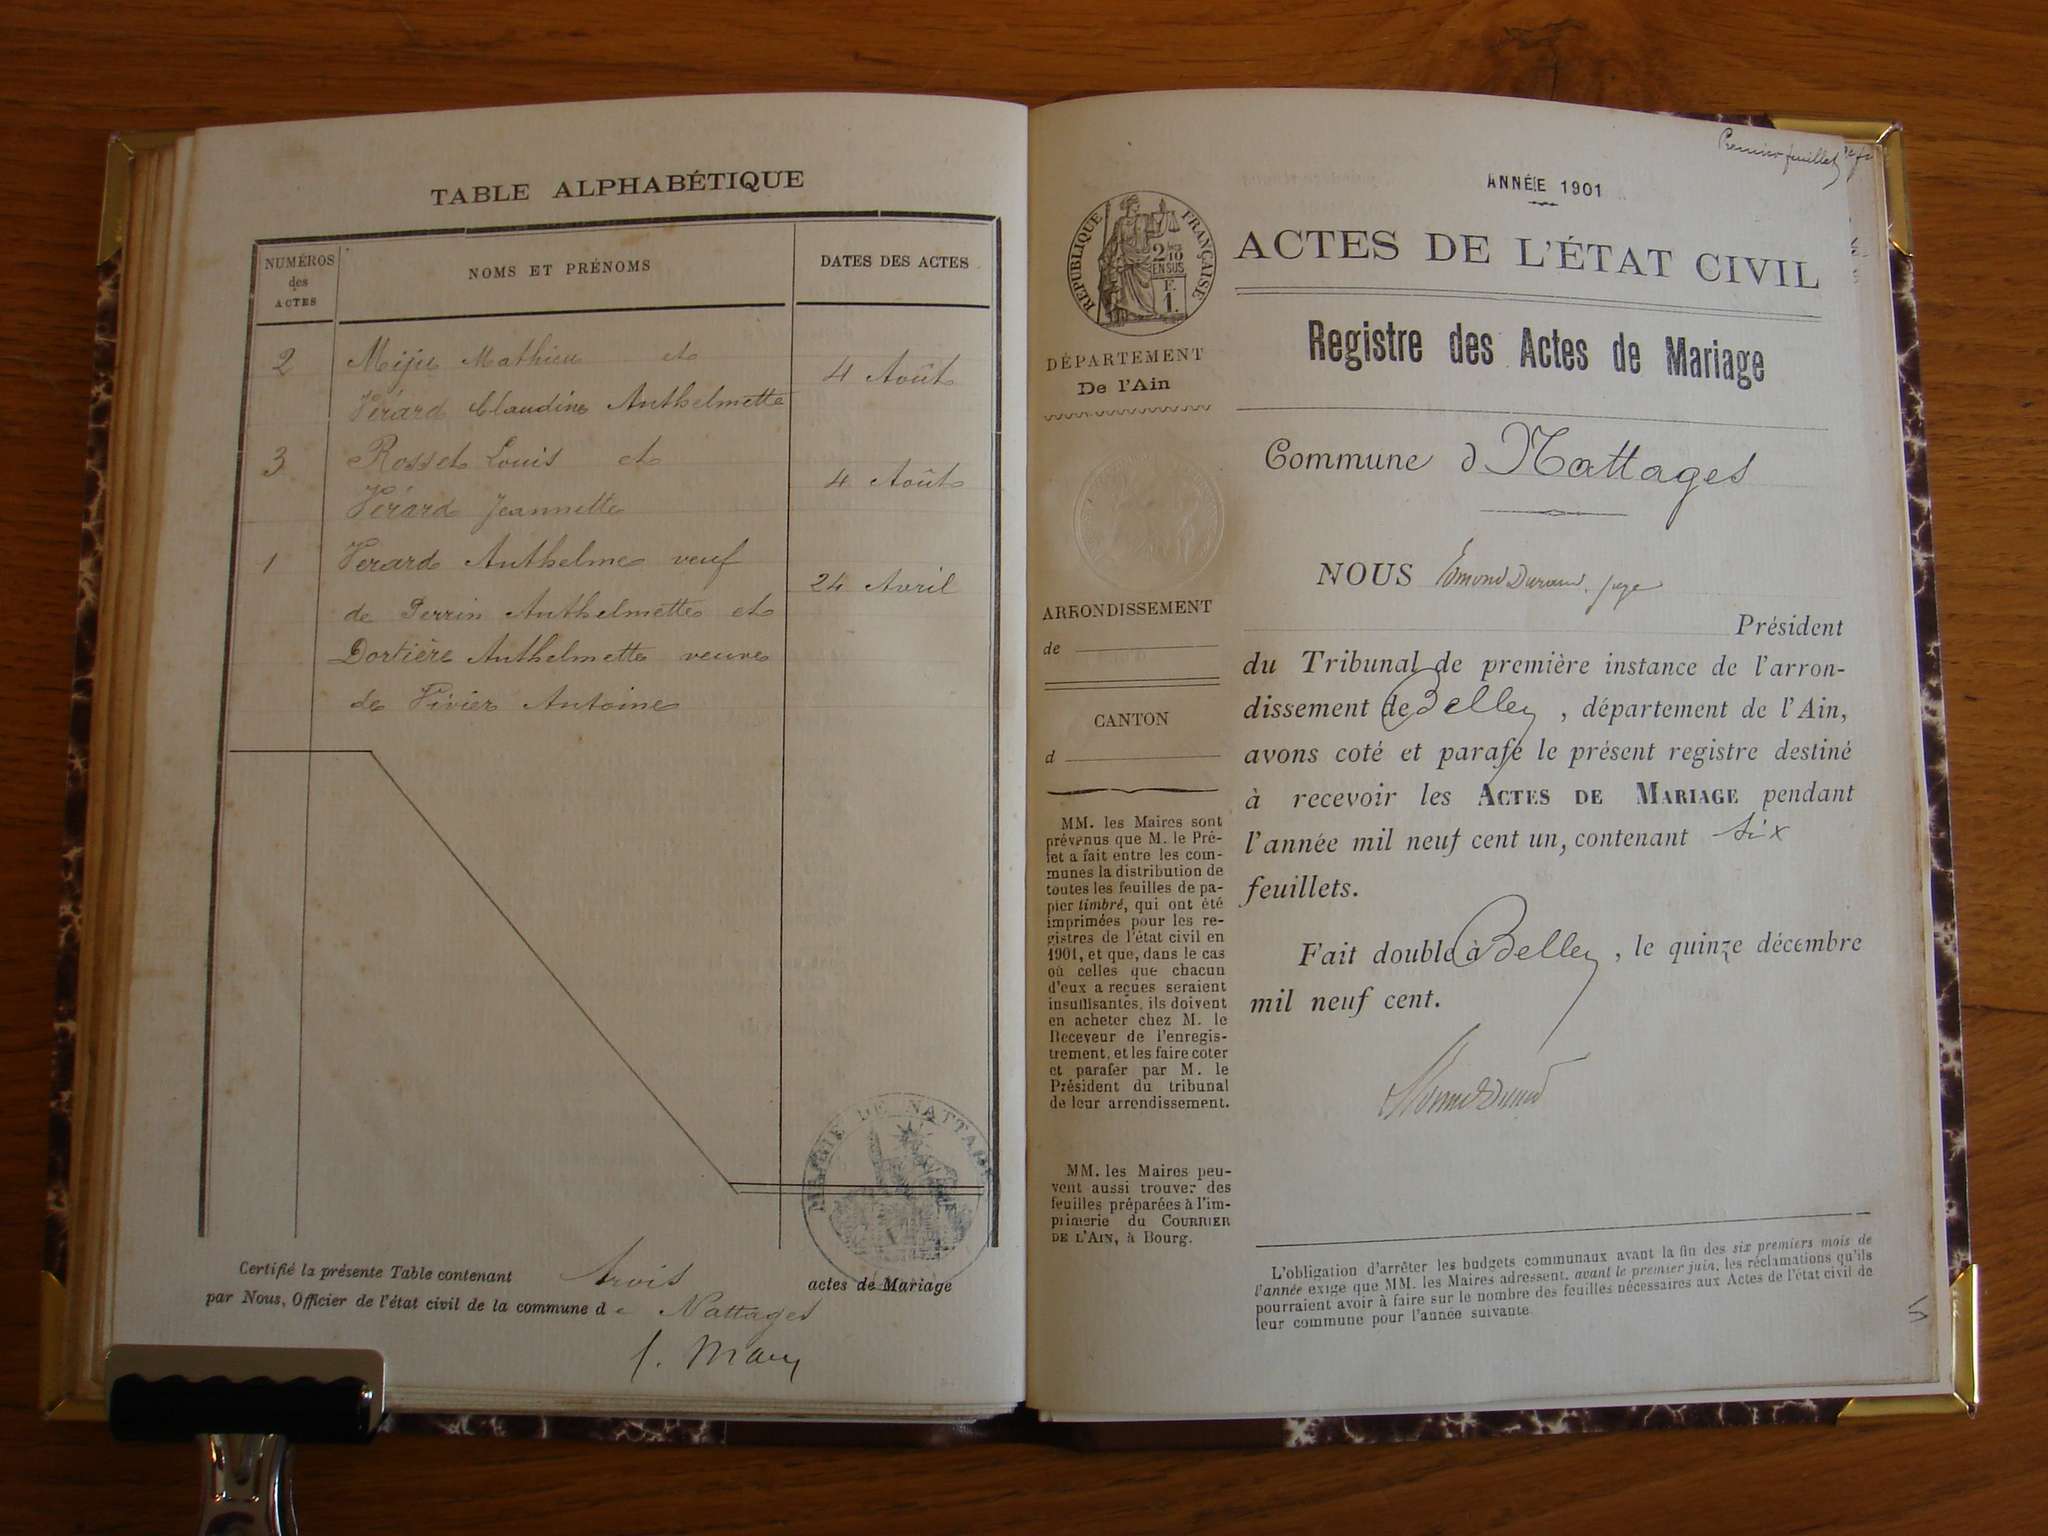 TABLE ALPHABÉTIQUE
NUMÉROS
des
ACTES
NOMS ET PRÉNOMS
DATES DES ACTES
2
Mathieu et
Vérard Claudine Anthelmette
4 Août
3
Rosset Louis et
Vérard Jeannette
4 Août
1
Verard Anthelme veuf
de Perrin Anthelmette et
Dortière Anthelmette veuve
de Vivier Antoine
24 Avril
MAIRIE DE NATTAGES
Certifié la présente Table contenant trois actes de Mariage
par Nous, Officier de l'état civil de la commune de Nattages
Premier feuillet
ANNÉE 1901
RÉPUBLIQUE FRANÇAISE
2/10
EN SUS
F.
1.
ACTES DE L'ÉTAT CIVIL
Registre des Actes de Mariage
DÉPARTEMENT
De l'Ain
Commune d Nattages
NOUS Edmond Durand, juge
Président
du Tribunal de première instance de l'arron-
dissement de Belley, département de l'Ain,
avons coté et parafé le présent registre destiné
à recevoir les ACTES DE MARIAGE pendant
l'année mil neuf cent un, contenant six
feuillets.
Fait double à Belley, le quinze décembre
mil neuf cent.
ARRONDISSEMENT
de
CANTON
d
MM. les Maires sont
prévenus que M. le Pré-
fet a fait entre les com-
munes la distribution de
toutes les feuilles de pa-
pier timbré, qui ont été
imprimées pour les re-
gistres de l'état civil en
1901, et que, dans le cas
où celles que chacun
d'eux a reçues seraient
insuffisantes, ils doivent
en acheter chez M. le
Receveur de l'enregis-
trement, et les faire coter
et parafer par M. le
Président du tribunal
de leur arrondissement.
MM. les Maires peu-
vent aussi trouver des
feuilles préparées à l'im-
primerie du COURRIER
DE L'AIN, à Bourg.
L'obligation d'arrêter les budgets communaux avant la fin des six premiers mois de
l'année exige que MM. les Maires adressent, avant le premier juin, les réclamations qu'ils
pourraient avoir à faire sur le nombre des feuilles nécessaires aux Actes de l'état civil de
leur commune pour l'année suivante.